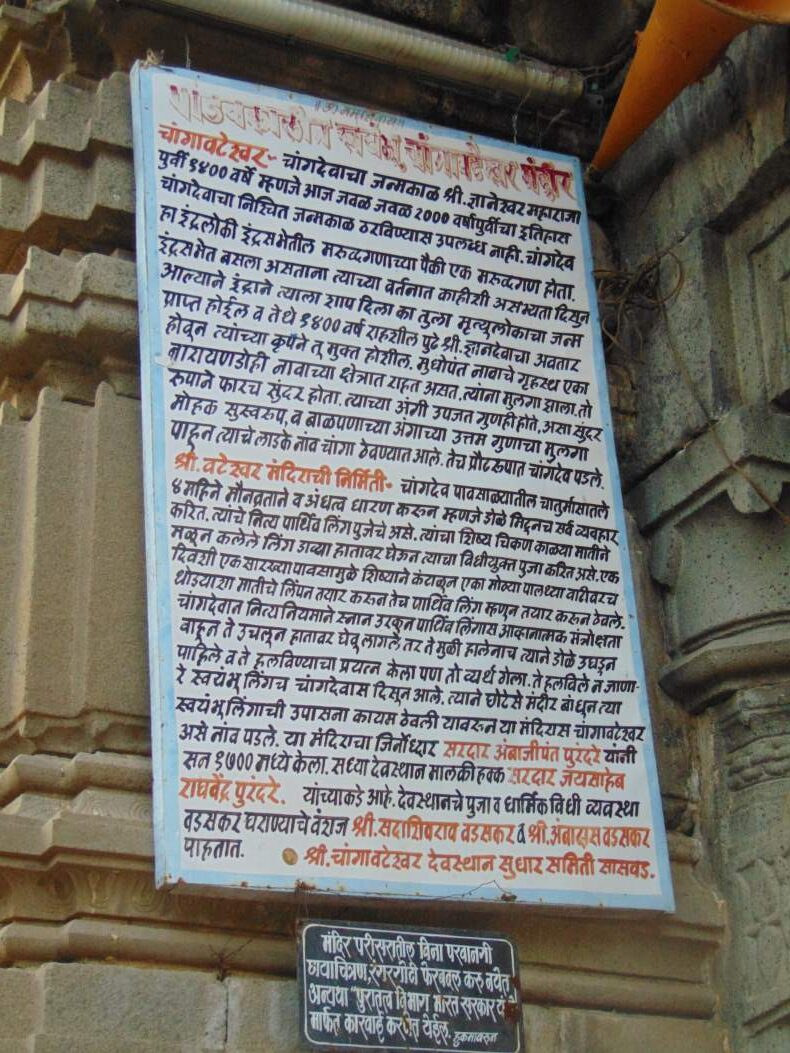 ॥ॐ नमः शिवाय॥
पांडवकालीन स्वयंभू चांगावटेश्वर मंदीर
चांगावटेश्वर- चांगदेवाचा जन्मकाळ श्री. ज्ञानेश्वर महाराजा
पुर्वी १४०० वर्षे म्हणजे आज जवळ जवळ २००० वर्षापुर्वीचा इतिहास
चांगदेवाचा निश्चित जन्मकाळ ठरविण्यास उपलब्ध नाही. चांगदेव
हा इंद्रलोकी इंद्रसभेतील मरुद्गणाच्या पैकी एक मरुद्गण होता.
इंद्रसभेत बसला असताना त्याच्या वर्तनात काहीशी असभ्यता दिसुन
आल्याने इंद्राने त्याला शाप दिला का तुला मृत्यूलोकाचा जन्म
प्राप्त होईल व तेथे १४०० वर्ष राहशील पुढे श्री. ज्ञानदेवाचा अवतार
होवून त्यांच्या कृपेने तू मुक्त होशील. मुधोपंत नावाचे गृहस्थ एका
नारायणडोही नावाच्या क्षेत्रात राहत असत. त्यांना मुलगा झाला. तो
रूपाने फारच सुंदर होता. त्याच्या अंगी उपजत गुणही होते. असा सुंदर
मोहक सुस्वरुप, व बाळपणाच्या अंगाच्या उत्तम गुणाचा मुलगा
पाहून त्याचे लाडके नांव चांगा ठेवण्यात आले. तेच प्रौढरुपात चांगदेव पडले.
श्री. वटेश्वर मंदिराची निर्मिती- चांगदेव पावसाळ्यातील चातुर्मासातले
४ महिने मौनव्रताने व अंधत्व धारण करून म्हणजे डोळे मिटूनच सर्व व्यवहार
करित. त्यांचे नित्य पार्थिव लिंग पुजेचे असे. त्यांचा शिष्य चिकण काळया मातीने
मळून कलेले लिंग डाव्या हातावर घेऊन त्याचा विधीयुक्त पुजा करित असे. एक
दिवशी एक सारख्या पावसामुळे शिष्याने कंटाळून एका मोठ्या पालथ्या वाटीवरच
थोडयाशा मातीचे लिंपन तयार करून तेच पार्थिव लिंग म्हणुन तयार करून ठेवले.
चांगदेवान नित्य नियमाने स्नान उरकून पार्थिव लिंगास आव्हानात्मक मंत्रोक्षता
वाहून ते उचलून हातावर घेवू लागले, तर ते मुळी हालेनाच त्याने डोळे उघडून
पाहिले व ते हलविण्याचा प्रयत्न केला पण तो व्यर्थ गेला. ते हलविले न जाणा-
रे स्वयंभू लिंगच चांगदेवास दिसून आले. त्याने छोटेसे मंदीर बांधून त्या
स्वयंभू लिंगाची उपासना कायम ठेवली यावरून या मंदिरास चांगावटेश्वर
असे नांव पडले. या मंदिराचा जिर्नोध्दार सरदार अंबाजीपंत पुरंदरे यांनी
सन १७०० मध्ये केला. सध्या देवस्थान मालकी हक्क सरदार जयसाहेब
राघवेंद्र पुरंदरे. यांच्याकडे आहे. देवस्थानचे पुजा व धार्मिक विधी व्यवस्था
वडसकर घराण्याचे वंशज श्री. सदाशिवराव वडसकर व श्री. अंबादास वडसकर
पाहतात.
श्री. चांगावटेश्वर देवस्थान सुधार समिती सासवड.
मंदिर परीसरातील विना परवानगी
छायाचित्रण, रंगरंगोटी फेरबदल करु नयेत
अन्यथा "पुरातत्व विभाग भारत सरकार यां
मार्फत कारवाई करण्यात येईल. हुकमावरुन